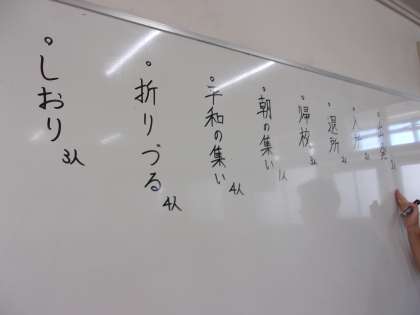 ・出発
・入所
・退所
・帰校 3人
・朝の集い 1人
・平和の集い 4人
・折りづる 4人
・しおり 3人